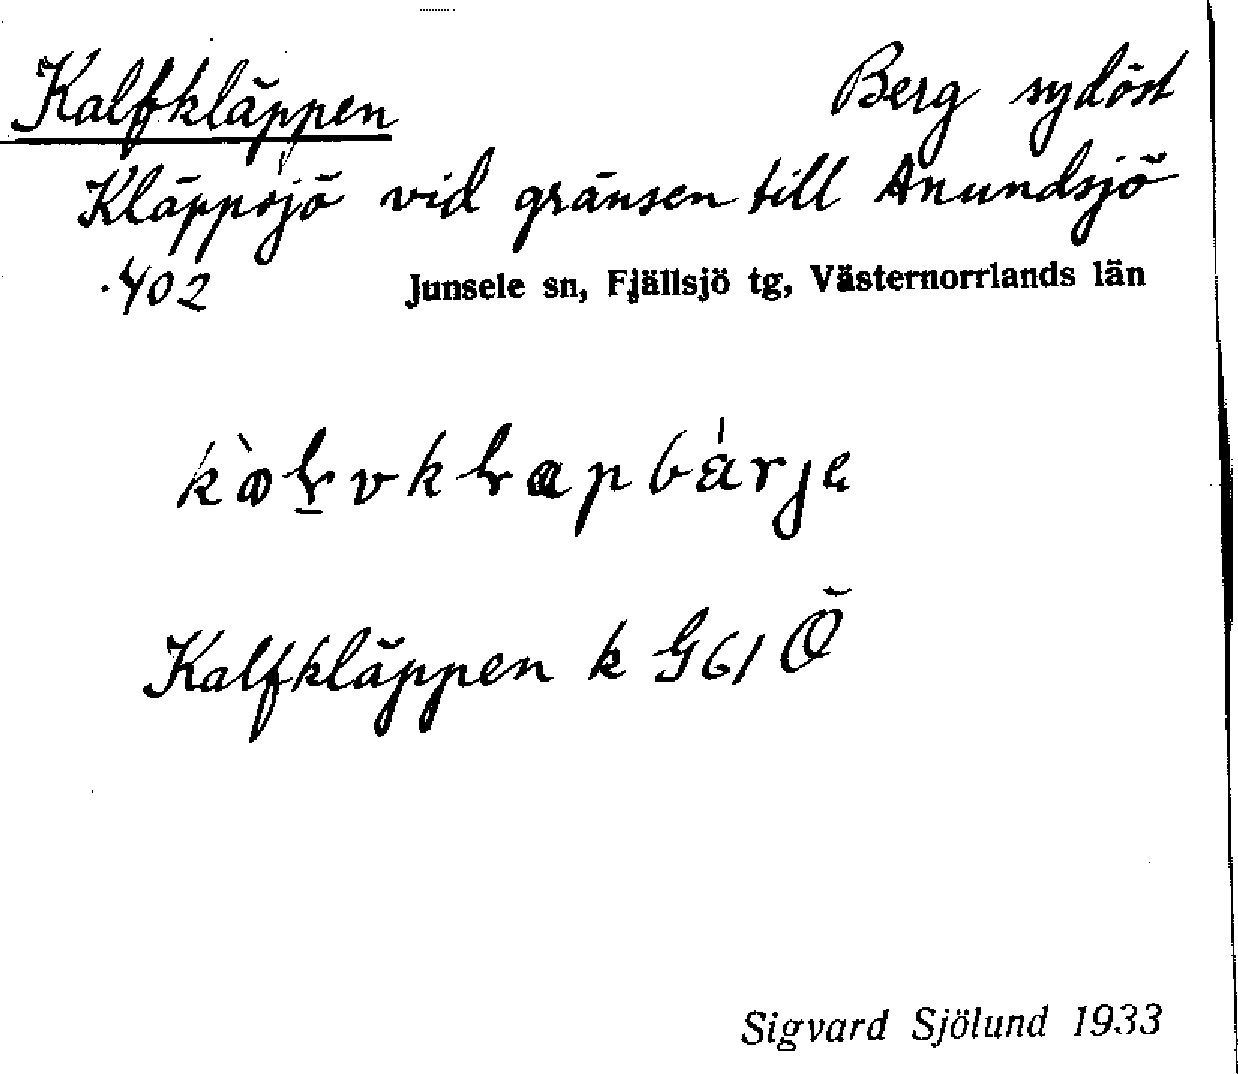 Kalfkläppen Berg sydöst
Kläppsjö vid gränsen till Anundsjö
402 Junsele sn, Fjällsjö tg, Västernorrlands län
Kalfkläppen k G61 Ö
Sigvard Sjölund 1933